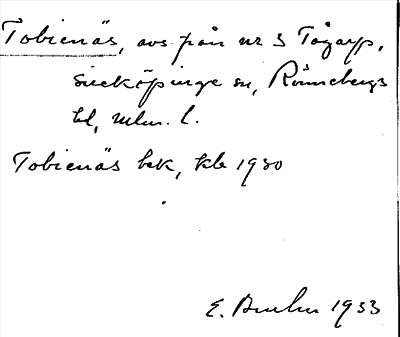 Tobienäs, avs. från nr 3 Tågarp,
Sireköpinge sn, Rönnebergs
hd, Mlm. l.
Tobienäs bek, kla 1930
E. 1933